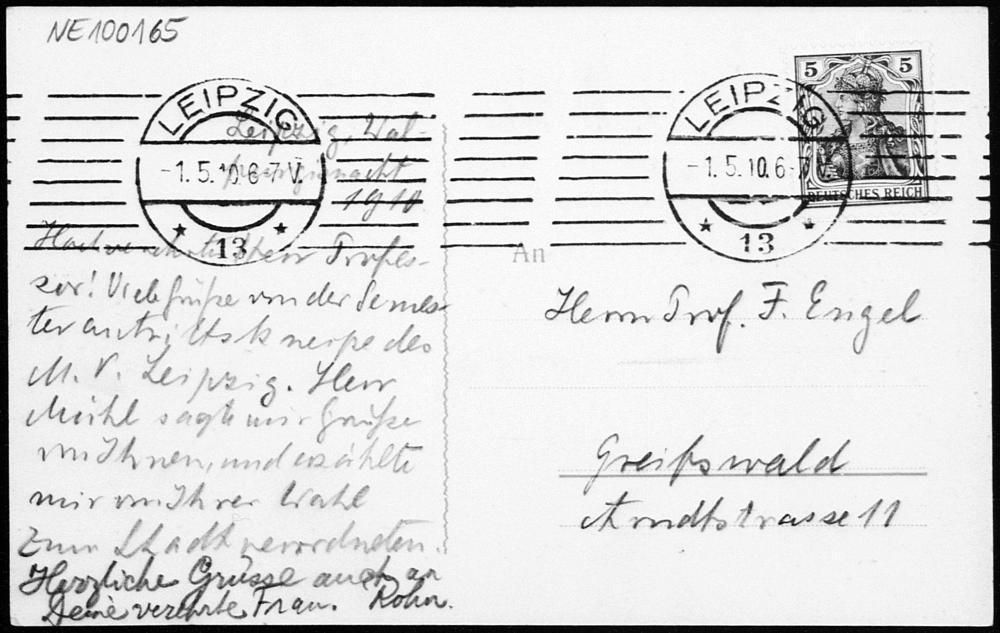 NE100165
LEIPZIG
-1.5.10.6-7V.
* 13 *
LEIPZIG
-1.5.10.6-7V.
* 13 *
5 5
DEUTSCHES REICH
Leipzig, Wal-
purgisnacht
1910.
Hochverehrter Herr Profes-
sor! Viele Grüße von der Semes-
terantrittskneipe des
M. V. Leipzig. Herr
Mühl sagte mir Grüße
von Ihnen, und erzählte
mir von Ihrer Wahl
zum Stadtverordneten.
Herzliche Grüsse auch an
Deine verehrte Frau. Rohn.
An
Herrn Prof. F. Engel
Greifswald
Arndtstrasse 11